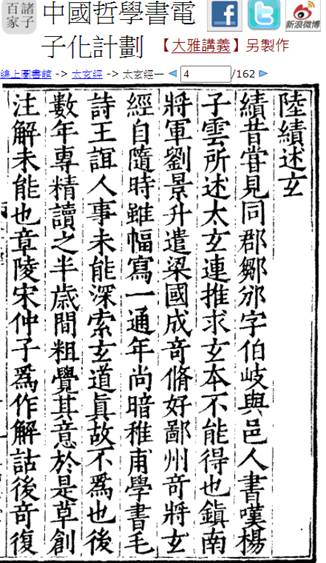 諸子
百家
中國哲學書電
子化計劃
【大雅講義】另製作
新浪微博
線上圖書館 -> 太玄經 -> 太玄經一
4
/162
陸績述玄
績昔嘗見同郡鄒邠字伯岐與邑人書嘆楊
子雲所述太玄連推求玄本不能得也鎮南
將軍劉景升遣梁國成奇脩好鄙州奇將玄
經自隨時雖幅寫一通年尚暗稚甫學書毛
詩王誼人事未能深索玄道真故不為也後
數年專精讀之半歲間粗覺其意於是草創
注解未能也章陵宋仲子為作解詁後奇復